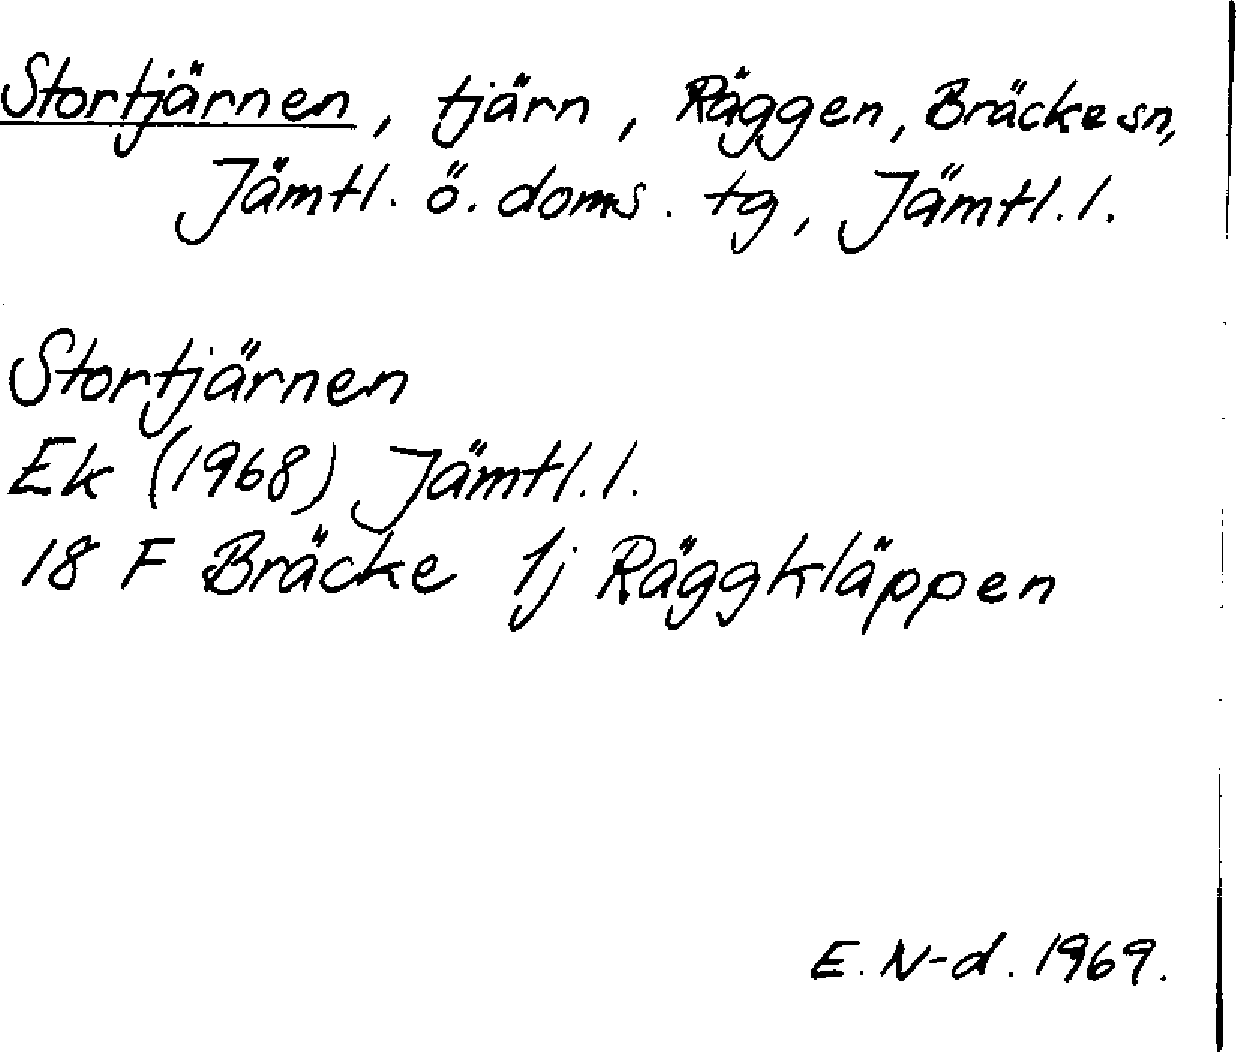 Stortjärnen, tjärn, Räggen, Bräcke sn,
Jämtl. ö. doms. tg, Jämtl. l.
Stortjärnen
Ek (1968) Jämtl. l.
18 F Bräcke 1j Räggkläppen
E. N-d. 1969.